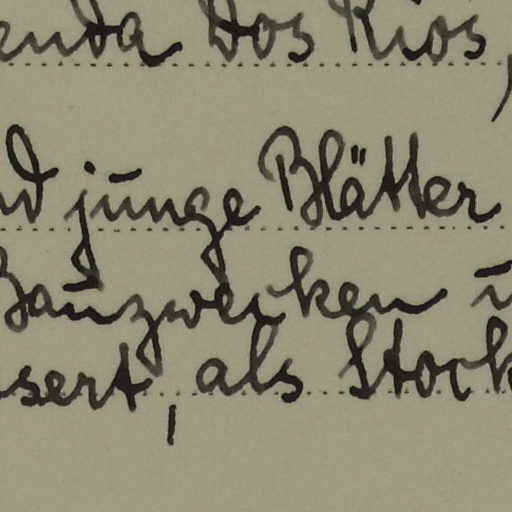 enda Dos Rios,
nd junge Blätter
Bauzwecken u
sert, als Stock